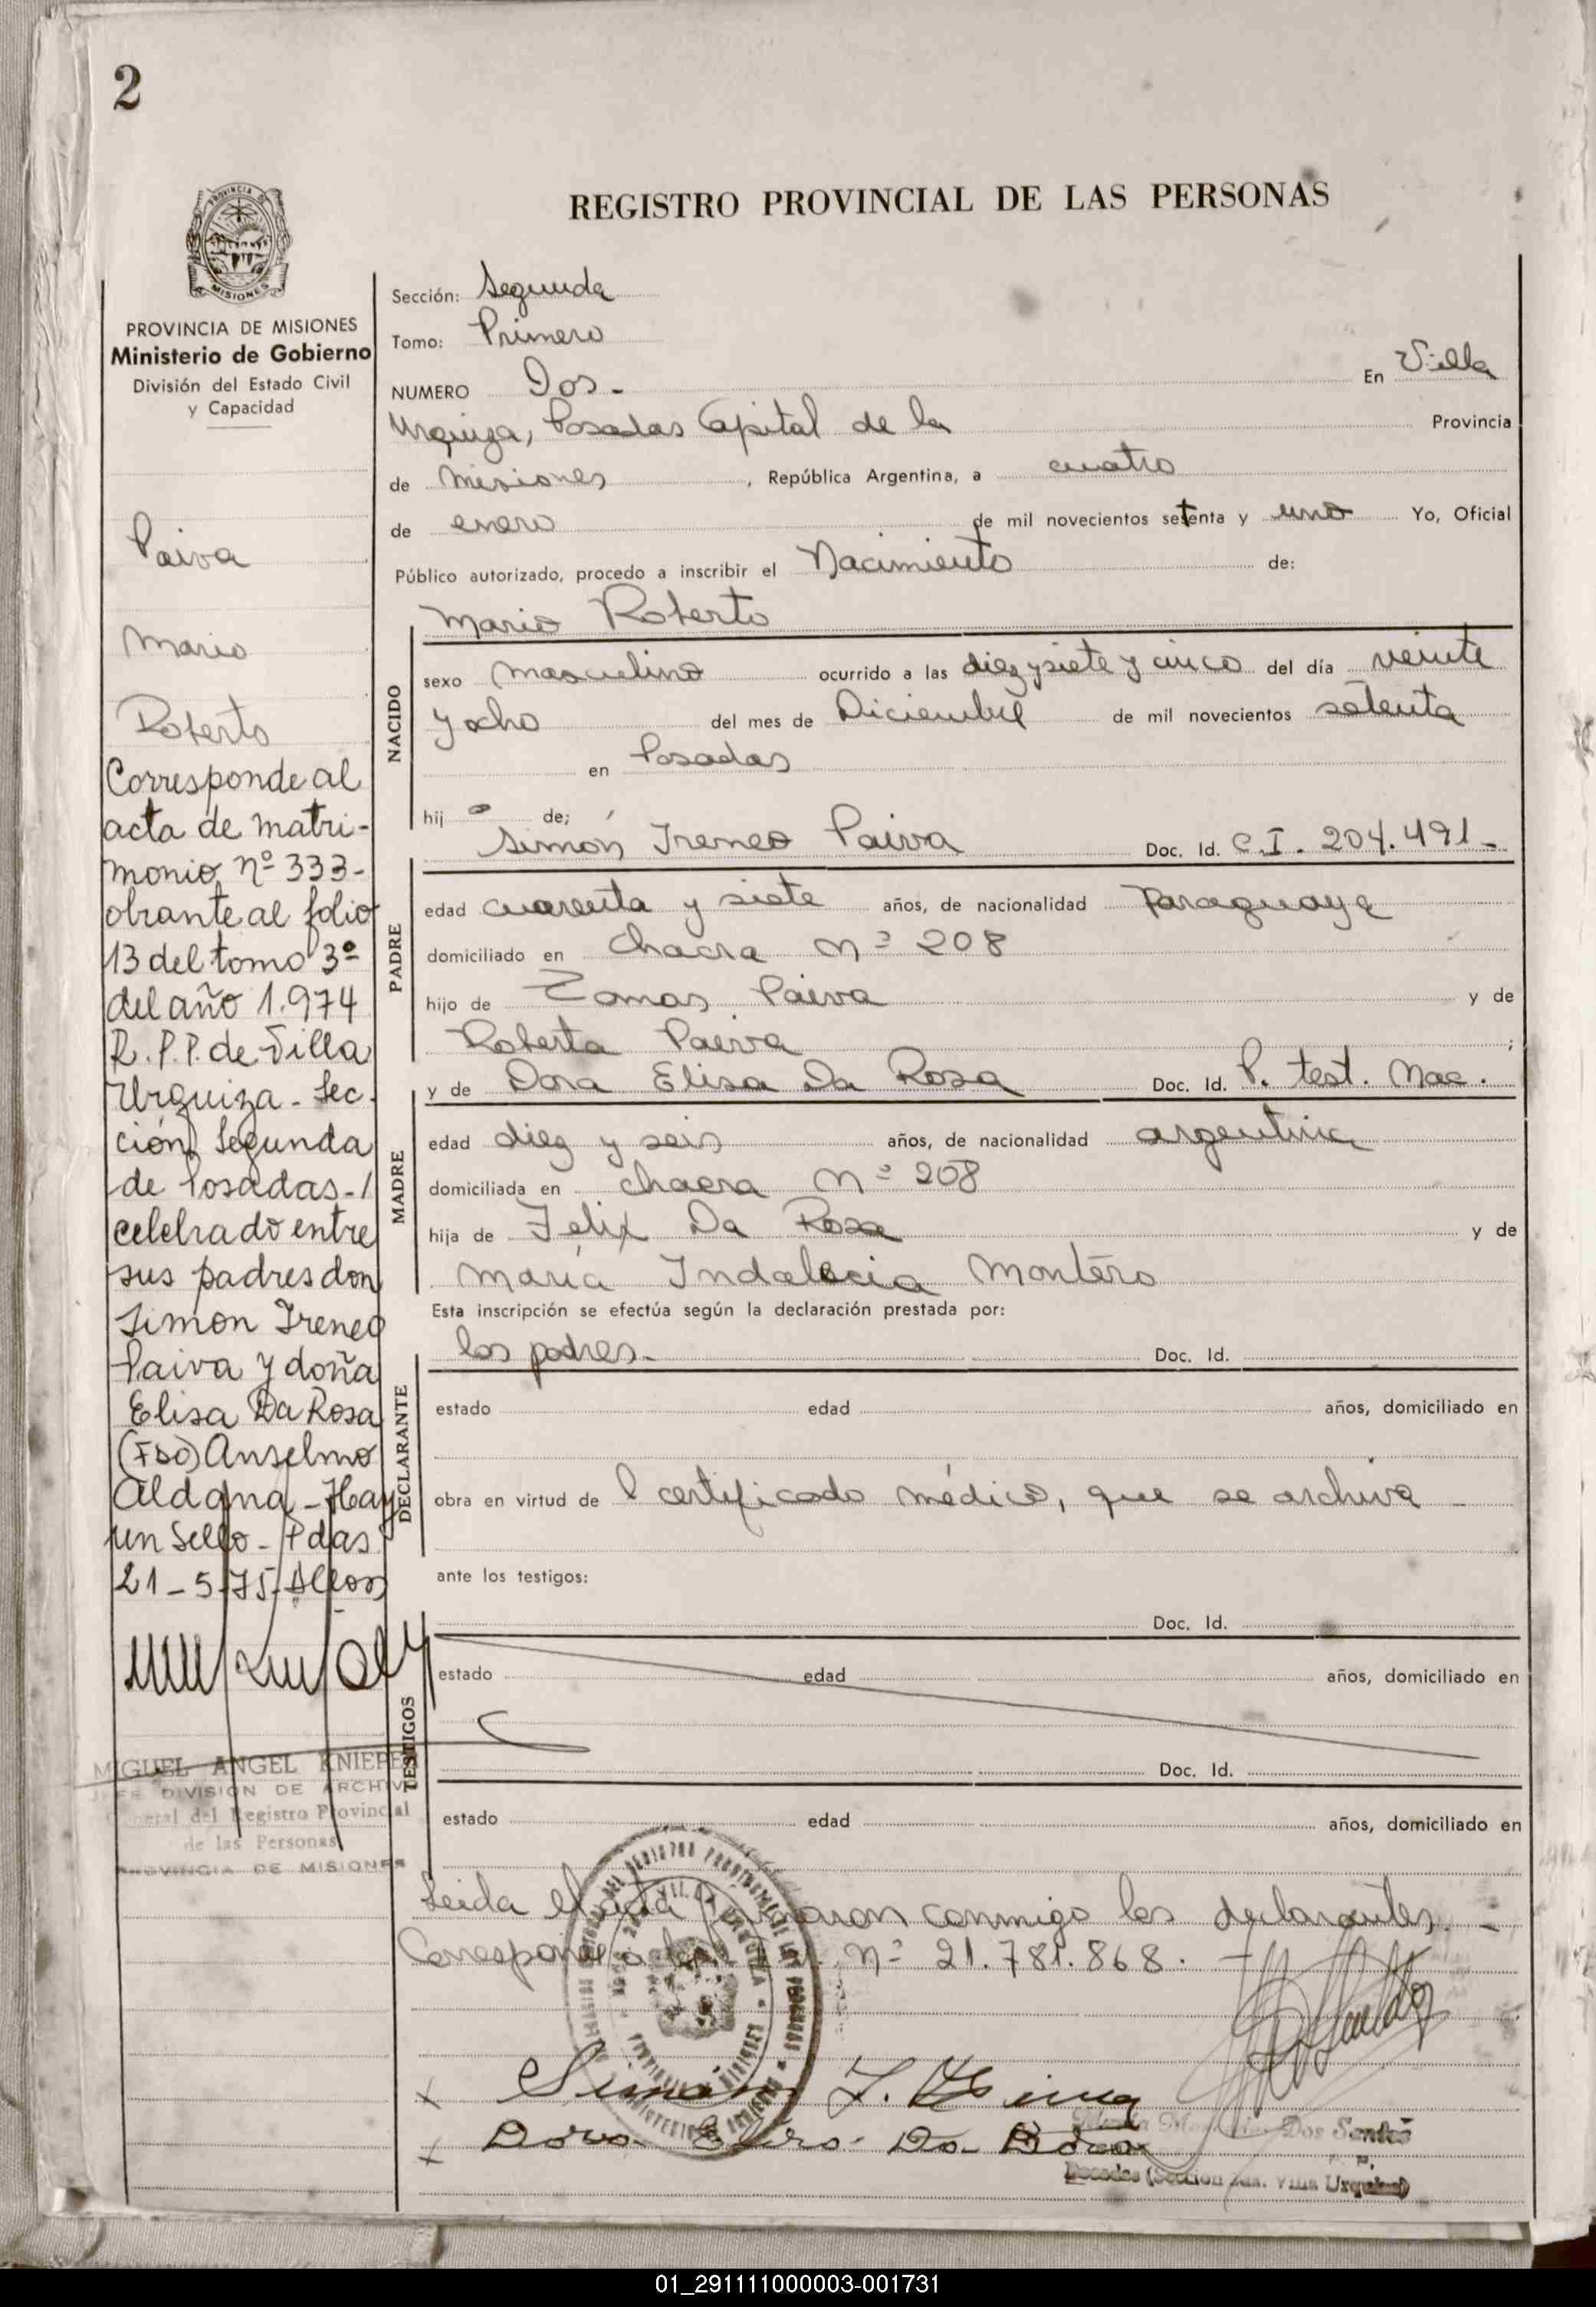 2
REGISTRO PROVINCIAL DE LAS PERSONAS
PROVINCIA DE MISIONES
Ministerio de Gobierno
División del Estado Civil
y Capacidad
Paiva
Mario
Roberto
Corresponde al
acta de matri-
monio nº 333-
obrante al folio
13 del tomo 3º
del año 1.974
R.P.P. de Villa
Urquiza - Sec.
ción Segunda
de Posadas-/
celebrado entre
sus padres don
Simon Ireneo
Paiva y doña
Elisa Da Rosa
(Fdo) Anselmo
Aldana - Hay
un Sello - Pdas
21-5-75
MIGUEL ANGEL
JEFE DIVISION DE ARCHIVO
General del Registro Provincial
de las Personas
PROVINCIA DE MISIONES
Sección: Segunda
Tomo: Primero
NUMERO Dos.- En Villa
Urquiza, Posadas Capital de la Provincia
de Misiones, República Argentina, a cuatro
de enero de mil novecientos setenta y uno Yo, Oficial
Público autorizado, procedo a inscribir el Nacimiento de:
Mario Roberto
NACIDO
sexo masculino ocurrido a las diez y siete y cinco del día veinte
y ocho del mes de Diciembre de mil novecientos setenta
en Posadas
hijo de;
Simón Ireneo Paiva Doc. Id. C.I. 204.491-
PADRE
edad cuarenta y siete años, de nacionalidad Paraguaya
domiciliado en chacra nº 208
hijo de Tomas Paiva y de
Roberta Paiva ;
y de Dora Elisa Da Rosa Doc. Id. P. test. Nac.
MADRE
edad diez y seis años, de nacionalidad argentina
domiciliada en chacra nº 208
hija de Felix Da Rosa y de
María Indalecia Montero
Esta inscripción se efectúa según la declaración prestada por:
los padres.- Doc. Id.
DECLARANTE
estado edad años, domiciliado en
obra en virtud de l certificado médico, que se archiva -
ante los testigos:
Doc. Id.
TESTIGOS
estado edad años, domiciliado en
Doc. Id.
estado edad años, domiciliado en
Leida el acta firmaron conmigo los declarantes. -
Corresponde nº 21.781.868. -
Simón I. Paiva
Dora Elisa Da Rosa
Dos Santos
Posadas (Sección 2da. Villa Urquiza)
01_291111000003-001731